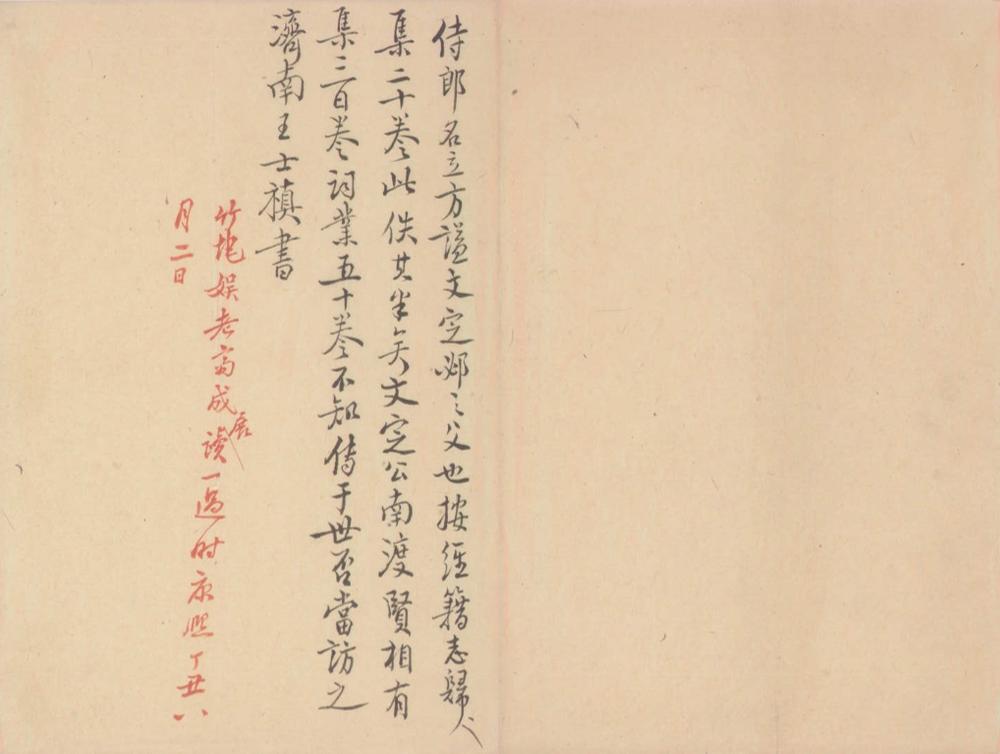 侍郎名立方謚文定邲之父也按經籍志歸愚
集二十卷此佚其半矣文定公南渡賢相有
集三百卷詞業五十卷不知傳于世否當訪之
濟南王士禛書
竹垞娛老齋成展讀一過时康熙丁丑八
月二日